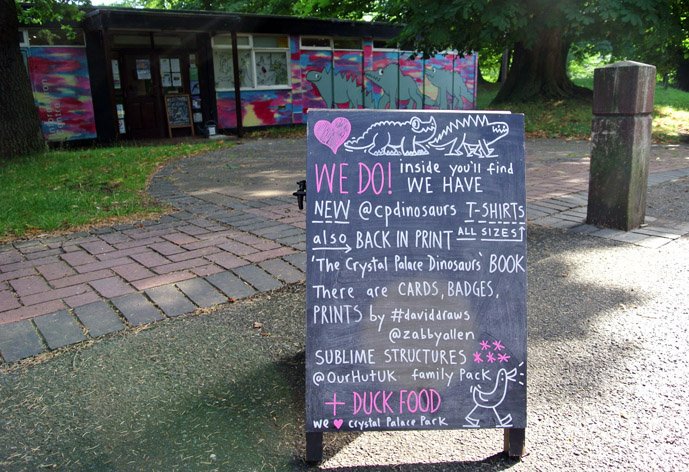 WE DO! inside you'll find
WE HAVE
NEW @cpdinosaurs T-SHIRTS
ALL SIZES
also BACK IN PRINT
'The Crystal Palace Dinosaurs' BOOK
There are CARDS, BADGES,
PRINTS by #daviddraws
@zabbyallen
SUBLIME STRUCTURES
@OurHutUK family Pack
+ DUCK FOOD
we ♥ Crystal Palace Park